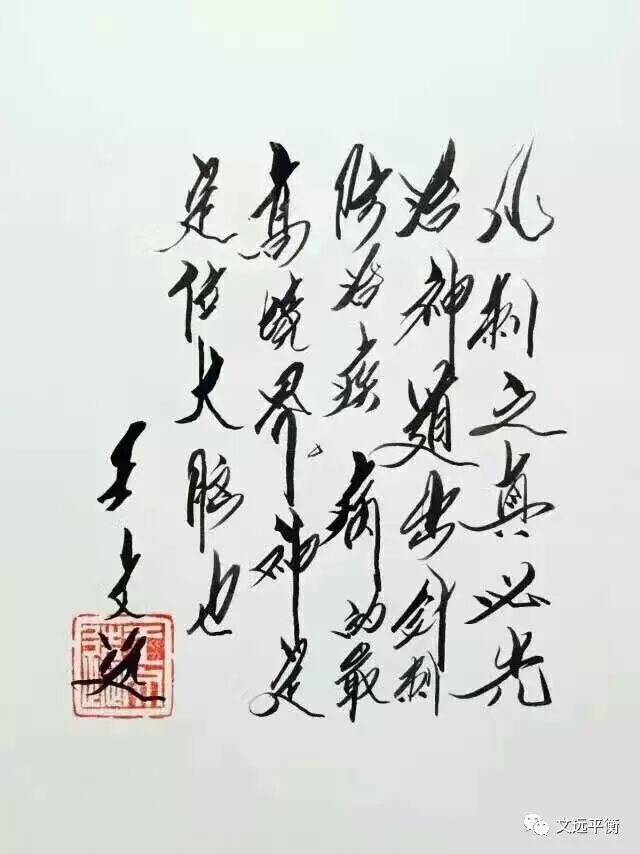 凡刺之真必先
治神道出针刺
防治疾病的最
高境界.神是
定位大脑也
王文远
文远平衡